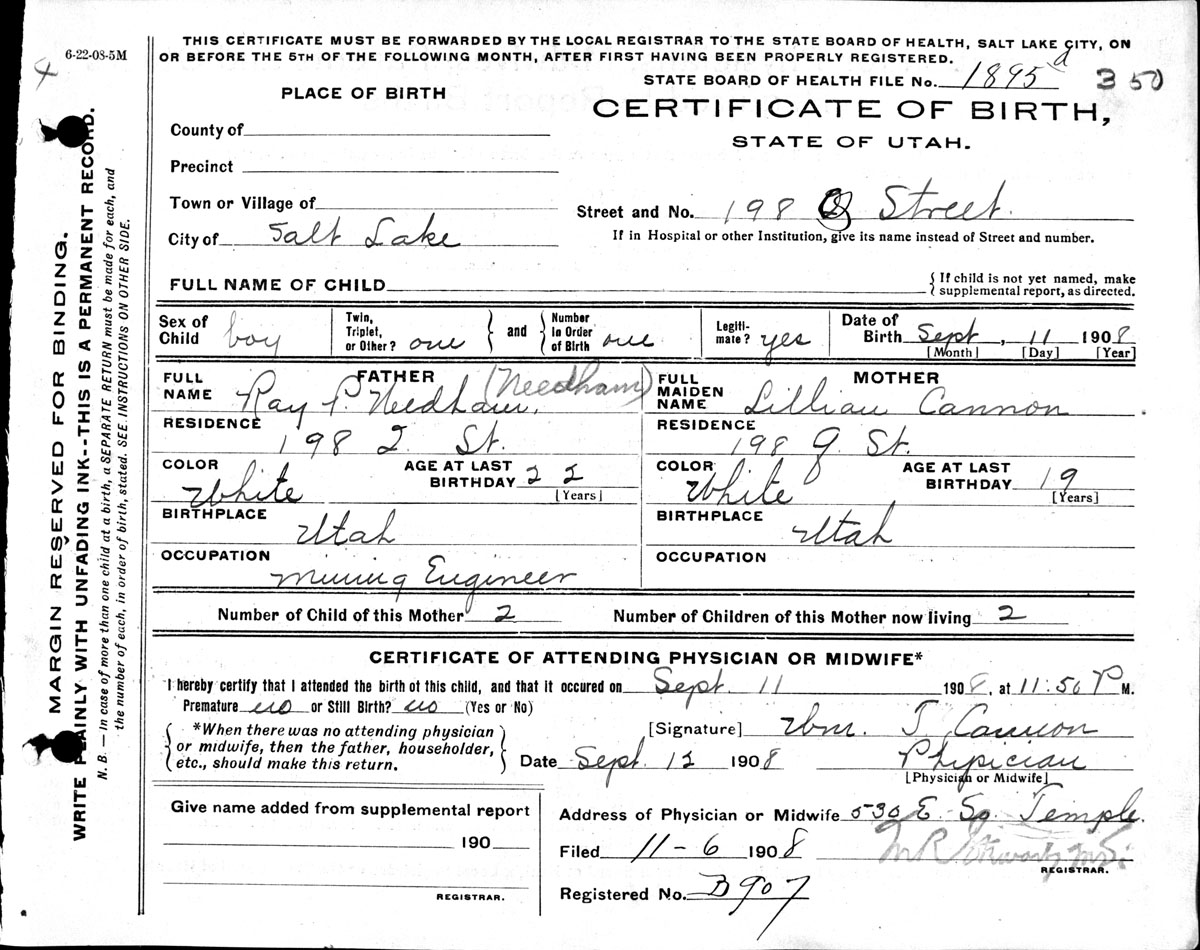 THIS CERTIFICATE MUST BE FORWARDED BY THE LOCAL REGISTRAR TO THE STATE BOARD OF HEALTH, SALT LAKE CITY, ON
OR BEFORE THE 5TH OF THE FOLLOWING MONTH, AFTER FIRST HAVING BEEN PROPERLY REGISTERED.
6-22-08-5M
4
STATE BOARD OF HEALTH FILE No. 1895 d 350
PLACE OF BIRTH
CERTIFICATE OF BIRTH,
STATE OF UTAH.
County of
Precinct
Town or Village of
Street and No. 198 Street.
City of Salt Lake
If in Hospital or other Institution, give its name instead of Street and number.
FULL NAME OF CHILD
{ If child is not yet named, make
supplemental report, as directed.
Sex of Child boy
Twin, Triplet, or Other? one } and { Number In Order of Birth one
Legiti- mate? yes
Date of Birth Sept, 11 1908
[Month] [Day] [Year]
FATHER
FULL NAME Ray P. Needham. (Needham)
MOTHER
FULL MAIDEN NAME Lillian Cannon
RESIDENCE
198 St.
RESIDENCE
198 St.
COLOR White
AGE AT LAST BIRTHDAY 22
[Years]
COLOR White
AGE AT LAST BIRTHDAY 19
[Years]
BIRTHPLACE
Utah
BIRTHPLACE
Utah
OCCUPATION
Mining Engineer
OCCUPATION
Number of Child of this Mother 2 Number of Children of this Mother now living 2
CERTIFICATE OF ATTENDING PHYSICIAN OR MIDWIFE*
I hereby certify that I attended the birth of this child, and that it occured on Sept. 11 1908, at 11:50 P M.
Premature no or Still Birth? no (Yes or No)
{ *When there was no attending physician
or midwife, then the father, householder,
etc., should make this return. }
[Signature] Wm. T. Cannon
Date Sept. 12 1908 Physician
[Physician or Midwife]
Give name added from supplemental report
190
REGISTRAR.
Address of Physician or Midwife 530 E. So. Temple.
Filed 11-6 1908
REGISTRAR.
Registered No. B907
MARGIN RESERVED FOR BINDING.
WRITE PLAINLY WITH UNFADING INK--THIS IS A PERMANENT RECORD.
N. B. — In case of more than one child at a birth, a SEPARATE RETURN must be made for each, and
the number of each, in order of birth, stated. SEE INSTRUCTIONS ON OTHER SIDE.